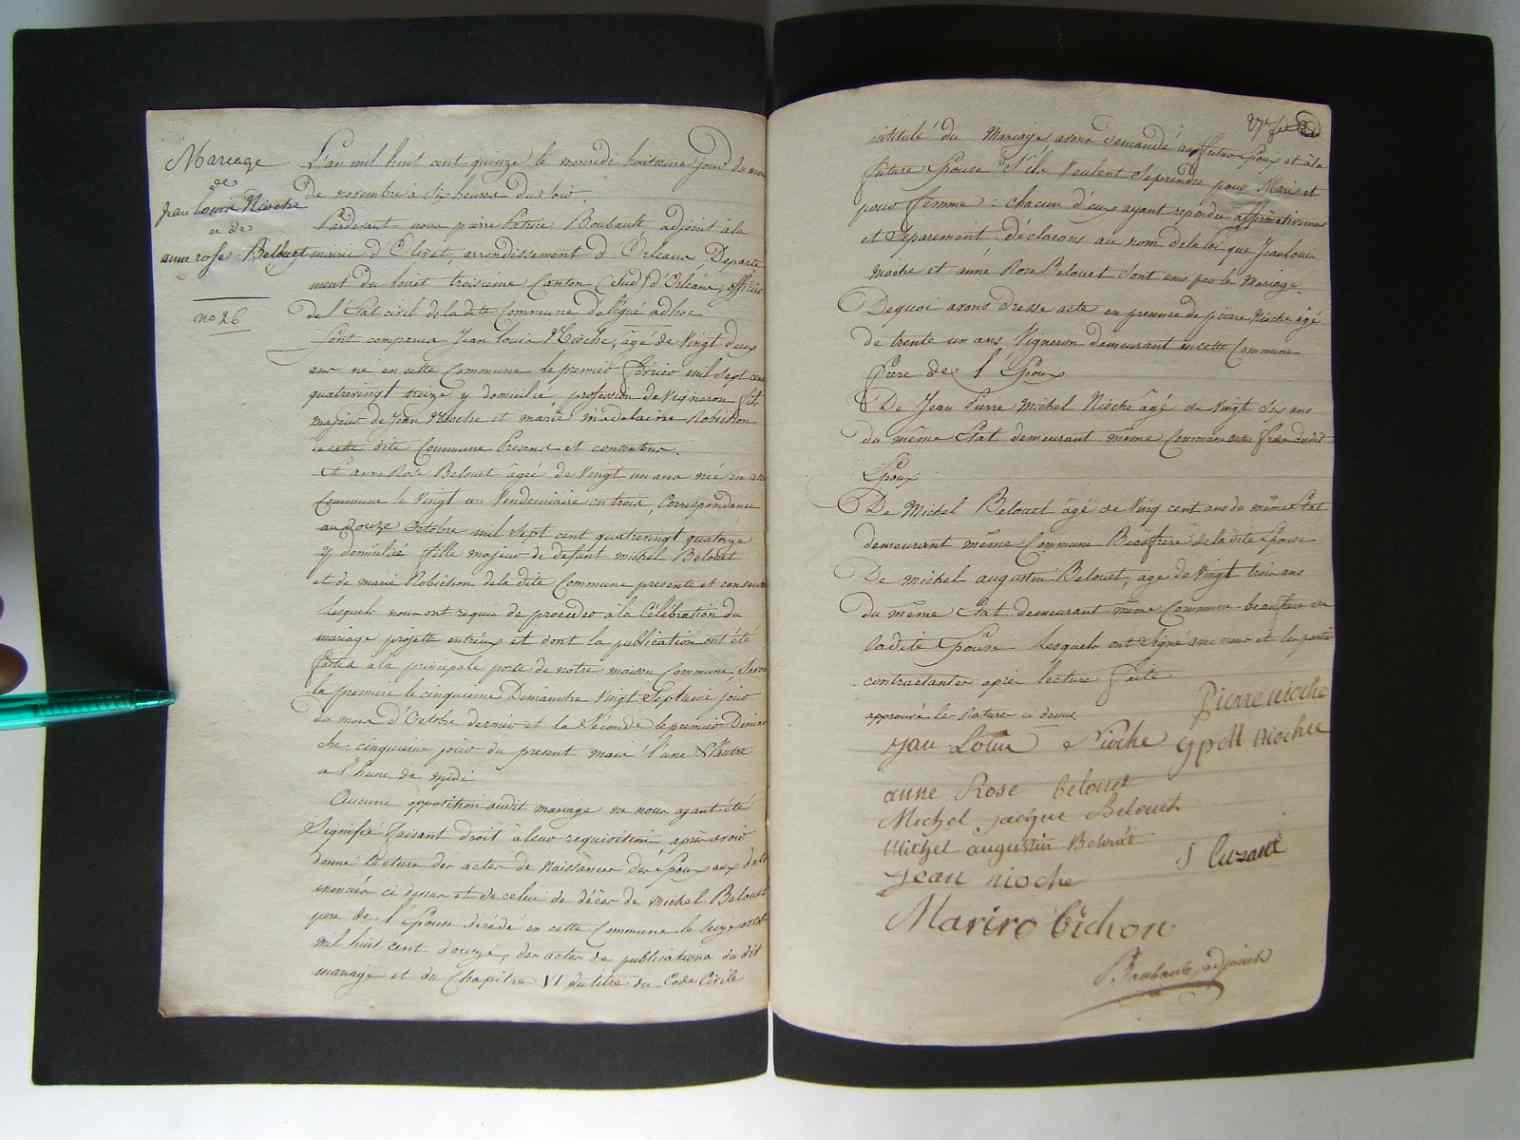 Mariage
de
Jean Louis Nioche
et de
anne rose Belouet
no 26
L'an mil huit cent quinze le mercredi huitieme jour du mois
de novembre à six heures du soir
Pardevant nous pierre Patrice Boubault adjoint à la
mairie d'Olivet, arrondissement d'Orleans, Departe
ment du loiret troisieme Canton (sud) d'Orléans, officier
de l'Etat civil de la dite Commune délégué adhoc
Sont comparus Jean louis Nioche, âgé de Vingt deux
ans né en cette Commune le premier fevrier mil sept cent
quatrevingt treize y domicilié, profession de Vigneron fils
majeur de Jean Nioche et marie madelaine Robichon
de cette dite Commune Presens et consentans.
Et anne Rose Belouet âgée de Vingt un ans née en cette
Commune le Vingt un Vendemiaire an trois, Correspondant
au Douze Octobre mil sept cent quatrevingt quatorze
y domiciliée fille majeur de defunt michel Belouet
et de marie Robichon de la dite Commune presente et consentante
Lesquels nous ont requis de proceder à la Célébration du
mariage projetté entr'eux et dont les publications ont été
faites a la principale porte de notre maison Commune, Savoir
la premiere le cinquieme Dimanche Vingt Septieme jour
du mois d'Octobre dernier et la Séconde le premier Diman
che cinquieme jour du present mois l'une & l'autre
a l'heure de midi
Aucune opposition audit mariage ne nous ayant été
Signifié faisant droit à leur requisition après avoir
donné lecture des actes de Naissances des Epoux aux dates
enoncées ci dessus et de celui de décès de Michel Belouet
pere de l'Epouse décédé en cette Commune le
mil huit cent douze, des actes de publications du dit
mariage et du Chapitre VI du titre du Code Civile
27e fet
intitulé du Mariage, avons demandé au futur Epoux et à la
future Epouse S'ils Veulent Se prendre pour Mari et
pour femme : chacun d'eux ayant répondu affirmativement
et Separement déclarons au nom de la loi que Jean louis
nioche et anne Rose Belouet Sont unis par le Mariage.
De quoi avons Dressé acte en presence de pierre Nioche âgé
de trente un ans Vigneron demeurant en cette Commune
frere de l'Epoux
De Jean Pierre Michel Nioche âgé de Vingt six ans
du même Etat demeurant même Commune frere dudit
Epoux
De Michel Belouet âgé de Vingt cent ans du même Etat
demeurant même Commune Beaufrere de la dite Epouse
De michel augustin Belouet, age de Vingt trois ans
du même Etat demeurant même Commune beaufrere de
ladite Epouse Lesquels ont Signé avec nous et les parties
contractantes après lecture faite
approuvé
Pierre nioche
Jean Louis Nioche
gpm nioche
anne Rose belouet
Michel jacque Belouet
Michel augustin Belouet
J Cuzant
Jean nioche
Mari robichon
P. Boubault adjoint